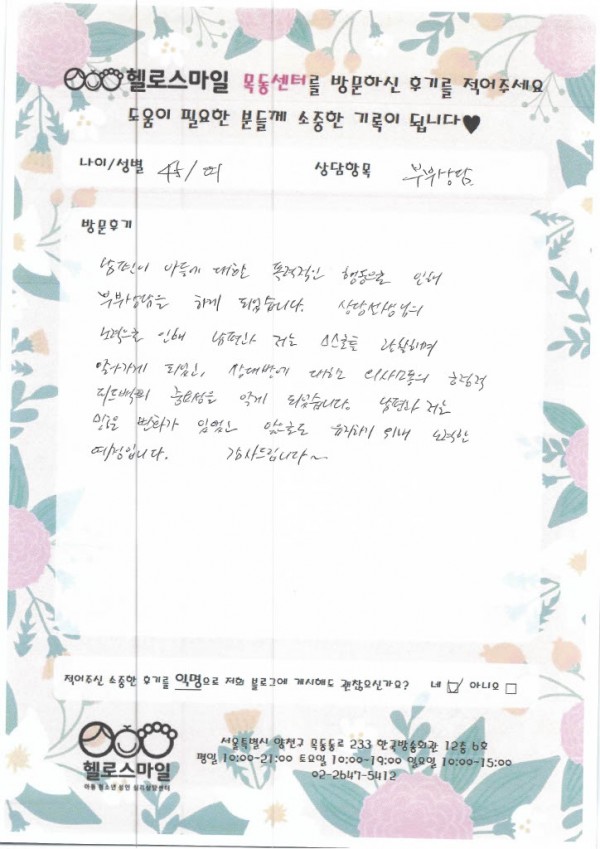 헬로스마일 목동센터를 방문하신 후기를 적어주세요
도움이 필요한 분들께 소중한 기록이 됩니다♥
나이/성별 45/여 상담항목 부부상담
방문후기
남편이 아들에 대한 폭력적인 행동으로 인해
부부상담을 하게 되었습니다. 상담선생님의
노력으로 인해 남편과 저는 스스로를 관찰하며
알아가게 되었고, 상대방에 대한 의사소통의 긍정적
피드백의 중요성을 알게 되었습니다. 남편과 저는
많은 변화가 있었고 앞으로도 유지하기 위해 노력할
예정입니다. 감사드립니다~
적어주신 소중한 후기를 익명으로 저희 블로그에 게시해도 괜찮으신가요? 네 ☑ 아니오 □
헬로스마일
아동 청소년 성인 심리상담센터
서울특별시 양천구 목동동로 233 한국방송회관 12층 6호
평일 10:00-21:00 토요일 10:00-19:00 일요일 10:00-15:00
02-2647-5412